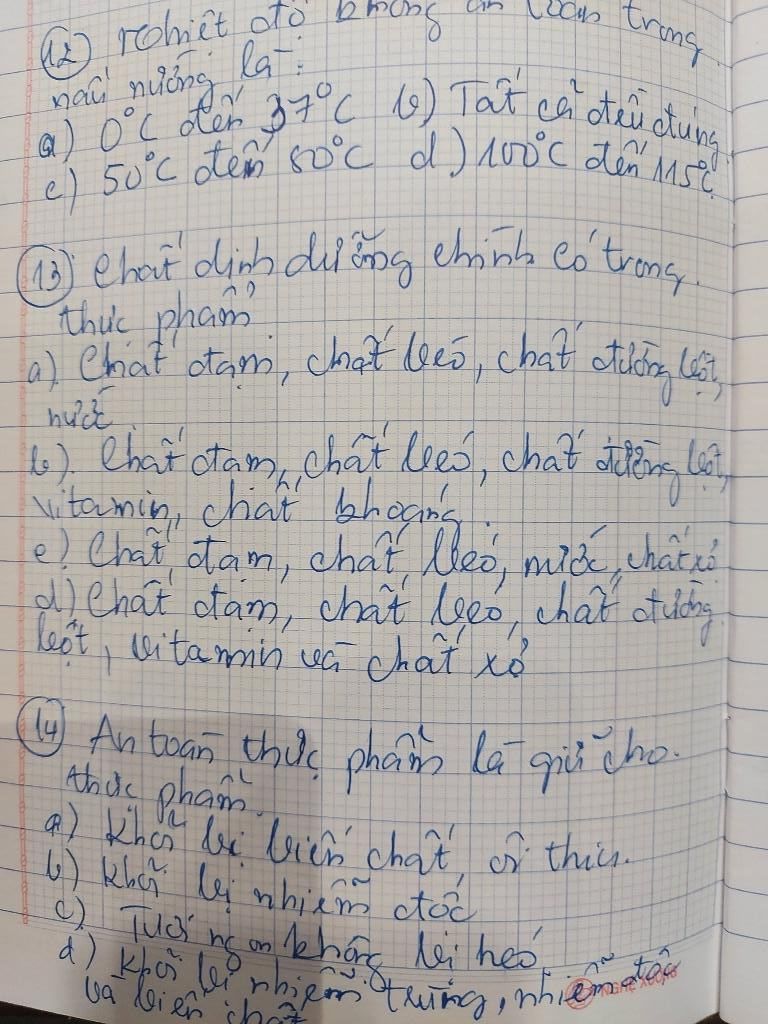 12) Nhiệt độ không an toàn trong
nấu nướng là:
a) 0°C đến 37°C b) Tất cả đều đúng
c) 50°C đến 80°C d) 100°C đến 115°C
13) Chất dinh dưỡng chính có trong
thực phẩm
a) Chất đạm, chất béo, chất đường bột,
nước.
b). Chất đạm, chất béo, chất đường bột,
vitamin, chất khoáng.
c) Chất đạm, chất béo, nước, chất xơ
d) Chất đạm, chất béo, chất đường
bột, vitamin và chất xơ
14) An toàn thực phẩm là giữ cho
thực phẩm.
a) Khỏi bị biến chất, ôi thiu.
b) Khỏi bị nhiễm độc
c) Tươi ngon không bị héo
d) Khỏi bị nhiễm trùng, nhiễm độc
và biến chất